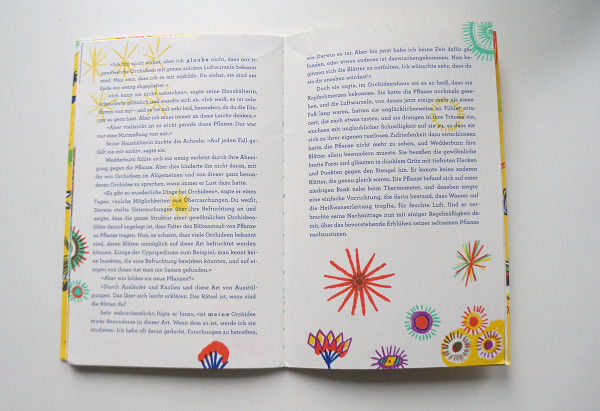 »Ich bin nicht sicher, aber ich glaube nicht, dass mir ir-
gendwelche Orchideen mit genau solchen Luftwurzeln bekannt
sind. Mag sein, dass ich es mir einbilde. Du siehst, sie sind am
Ende ein wenig abgeplattet.«
»Ich kann sie nicht ausstehen«, sagte seine Haushälterin,
plötzlich und wandte sich ab. »Ich weiß, es ist sehr
dumm von mir – und es tut mir sehr leid, besonders, da du die Din-
ger so gern hast. Aber ich muss immer an diese Leiche denken.«
»Aber vielleicht ist es nicht gerade diese Pflanze. Das war
nur eine Mutmaßung von mir.«
Seine Haushälterin zuckte die Achseln. »Auf jeden Fall ge-
fällt sie mir nicht«, sagte sie.
Wedderburn fühlte sich ein wenig verletzt durch ihre Abnei-
gung gegen die Pflanze. Aber dies hinderte ihn nicht daran, mit
ihr von Orchideen im Allgemeinen und von dieser ganz beson-
deren Orchidee zu sprechen, wann immer er Lust dazu hatte.
»Es gibt so wunderliche Dinge bei Orchideen«, sagte er eines
Tages, »solche Möglichkeiten von Überraschungen. Du weißt,
Darwin stellte Untersuchungen über ihre Befruchtung an und
zeigte, dass die ganze Struktur einer gewöhnlichen Orchideen-
blüte darauf angelegt ist, dass Falter den Blütenstaub von Pflanze
zu Pflanze tragen. Nun, es scheint, dass viele Orchideen bekannt
sind, deren Blüten unmöglich auf diese Art befruchtet werden
können. Einige der Cypripediums zum Beispiel; man kennt kei-
ne Insekten, die eine Befruchtung bewirken könnten, und auf ei-
nigen von ihnen hat man nie Samen gefunden.«
»Aber wie bilden sie neue Pflanzen?«
»Durch Ausläufer und Knollen und diese Art von Ausstül-
pungen. Das lässt sich leicht erklären. Das Rätsel ist, wozu sind
die Blüten da?
Sehr wahrscheinlich«, fügte er hinzu, »ist meine Orchidee
etwas Besonderes in dieser Art. Wenn dem so ist, werde ich sie
studieren. Ich habe oft daran gedacht, Forschungen zu betreiben,
wie Darwin es tat. Aber bis jetzt habe ich keine Zeit dafür ge-
funden, oder etwas anderes ist dazwischengekommen. Nun be-
ginnen sich die Blätter zu entfalten. Ich wünschte sehr, dass du
sie dir ansehen würdest!«
Doch sie sagte, im Orchideenhaus sei es so heiß, dass sie
Kopfschmerzen bekomme. Sie hatte die Pflanze nochmals gese-
hen, und die Luftwurzeln, von denen jetzt einige mehr als einen
Fuß lang waren, hatten sie unglücklicherweise an Fühler erin-
nert, die nach etwas tasten, und sie drangen in ihre Träume ein,
wuchsen mit unglaublicher Schnelligkeit auf sie zu, so dass sie
sich zu ihrer eigenen restlosen Zufriedenheit dazu entschlossen
hatte, die Pflanze nicht mehr zu sehen, und Wedderburn ihre
Blätter allein bewundern musste. Sie besaßen die gewöhnliche
breite Form und glänzten in dunklem Grün mit tiefroten Flecken
und Punkten gegen den Stengel hin. Er kannte keine anderen
Blätter, die genau gleich waren. Die Pflanze befand sich auf einer
niedrigen Bank nahe beim Thermometer, und daneben sorgte
eine einfache Vorrichtung, die darin bestand, dass Wasser auf
die Heißwasserleitung tropfte, für feuchte Luft. Und er ver-
brachte seine Nachmittage nun mit einiger Regelmäßigkeit da-
mit, über das bevorstehende Erblühen seiner seltsamen Pflanze
nachzusinnen.